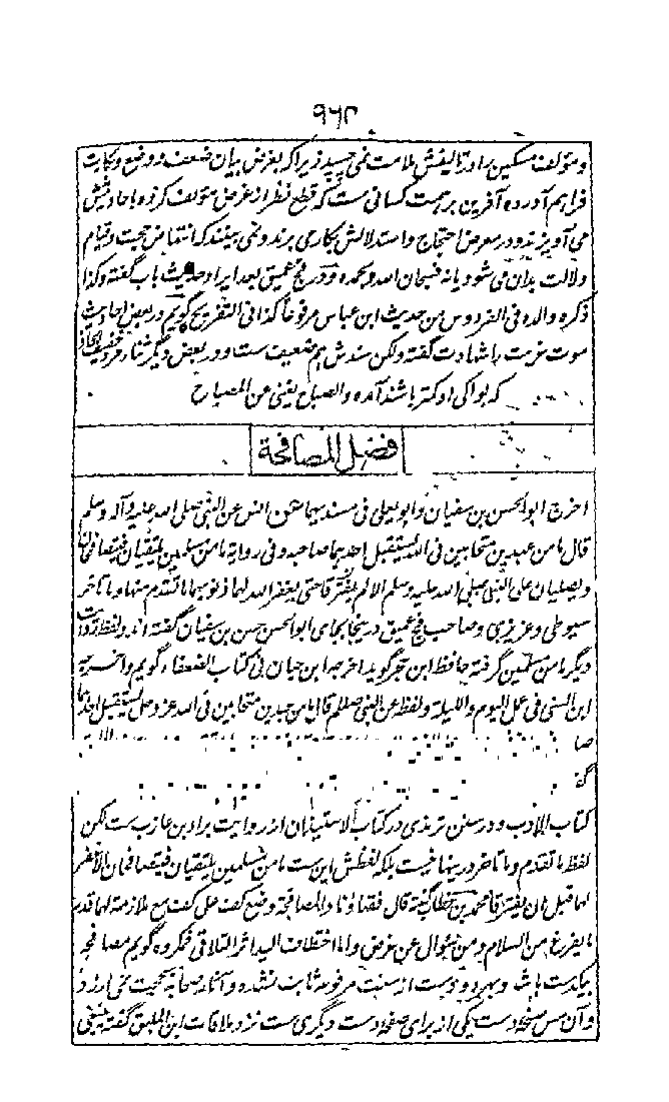 ۹۶۲
ومؤلف مسکین را در تالیفش ملامت نمی چسپد زیرا که بغرض بیان ضعف و وضع
فراهم آورده آفرین بر همت کسانی ست که قطع نظر از غرض مؤلف کرده باحادیثش
می آویزند و در معرض احتجاج و استدلالش بکار می برند و نمی بینند که انتهاض حجت و قیام
دلالت بدان می شود یا نه فسبحان الله وبحمده و در فج عمیق بعد ایراد حدیث باب گفته وکذا
ذکره والده فی الفردوس من حدیث ابن عباس مرفوعا کذا فی التفریح گویم در بعض احادیث
موت غربت را شهادت گفته ولکن سندش هم ضعیف ست و در بعض دیگر
که بواکی او کمتر باشند آمده والصباح یغنی عن المصباح
فضل المصافحة
اخرج ابو الحسن بن سفیان وابو یعلی فی مسندیهما عن انس عن النبی صلی الله علیه وآله وسلم
قال ما من عبدین متحابین فی الله یستقبل احدهما صاحبه وفی روایة ما من مسلمین یلتقیان فیتصافحان
ویصلیان علی النبی صلی الله علیه وسلم الا لم یفترقا حتی یغفر الله لهما ذنوبهما ما تقدم منها وما تأخر
سیوطی و عزیزی و صاحب فج عمیق در ینجا بجای ابو الحسن حسن بن سفیان گفته اند و لفظ روایت
دیگر ما من مسلمین گرفته حافظ ابن حجر گوید اخرجه ابن حبان فی کتاب الضعفاء گویم واخرجه
ابن السنی فی عمل الیوم واللیلة ولفظه عن النبی صللم قال ما من عبدین متحابین فی الله عز وجل یستقبل احدهما
صا
گف
کتاب الادب و در سنن ترمذی در کتاب الاستیذان از روایت براء بن عازب ست لکن
لفظ ما تقدم وما تأخر درینها نیست بلکه لفظش این ست ما من مسلمین یلتقیان فیتصافحان الا غفر
لهما قبل ان یفترقا محمد بن خطاب گفته قال فقهاؤنا والمصافحة وضع کف علی کف مع ملازمة لهما قدر
ما یفرغ من السلام ومن سؤال عن غرض واما اختطاف الید اثر التلاقی فمکروه گویم مصافحه
بیکدست باشد و بهر دو دست از سنت مرفوعه ثابت نشده و آثار صحابه بحجیت نمی ارزد
و آن مس صفحه دست یکی از برای صفحه دست دیگری ست نزد ملاقات ابن الملقن گفته ینبغی